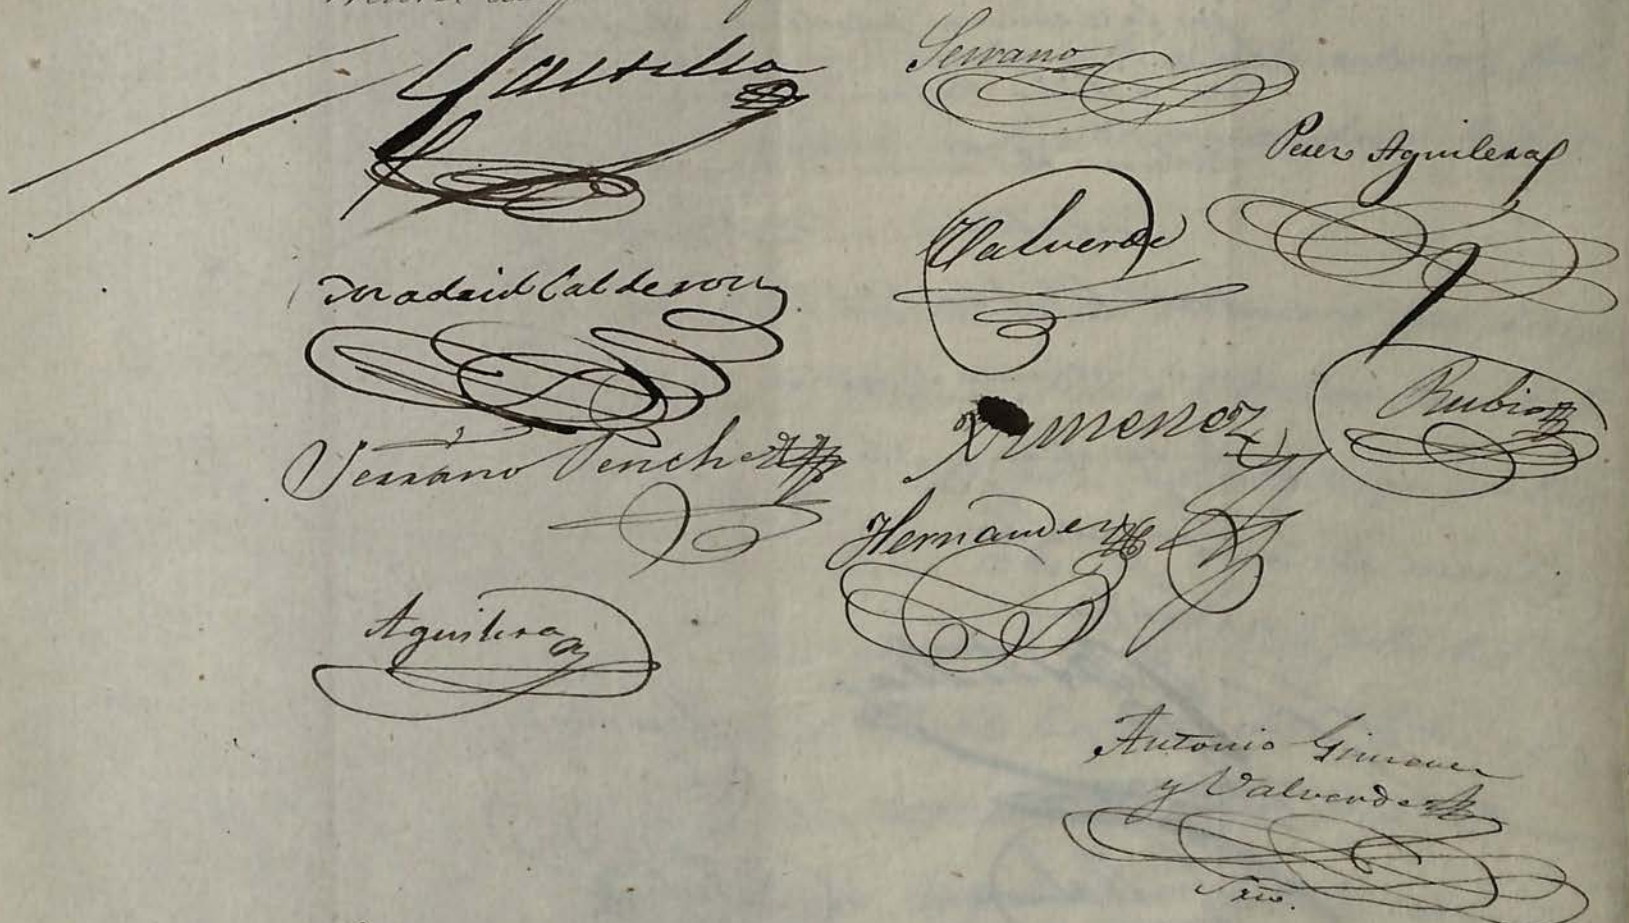 Castilla
Serrano
Perez Aguilera
Valverde
Madrid Calderon
Rubio
Ximenez
Serrano Penche
Hernandez
Aguilera
Antonio Gimenez
y Valverde
Srio.